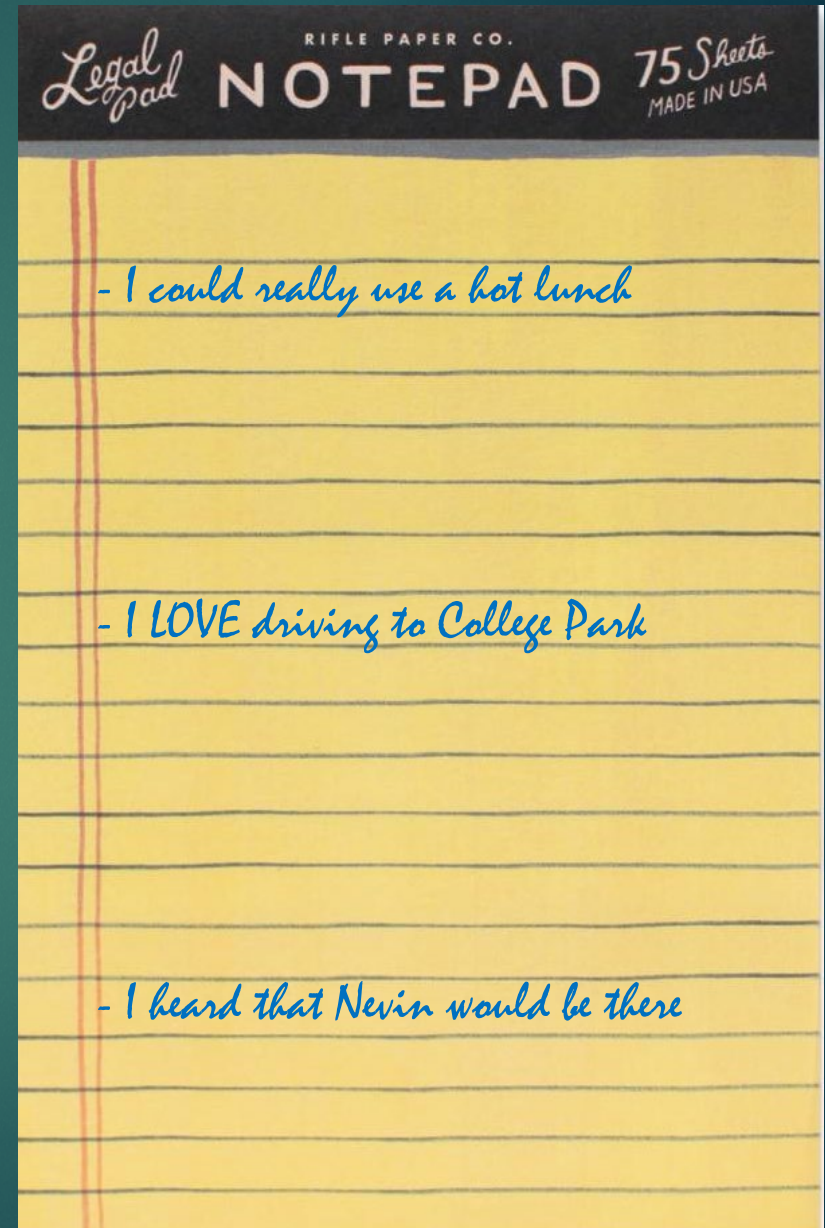 Legal Pad
RIFLE PAPER CO.
NOTEPAD
75 Sheets
MADE IN USA
- I could really use a hot lunch
- I LOVE driving to College Park
- I heard that Nevin would be there